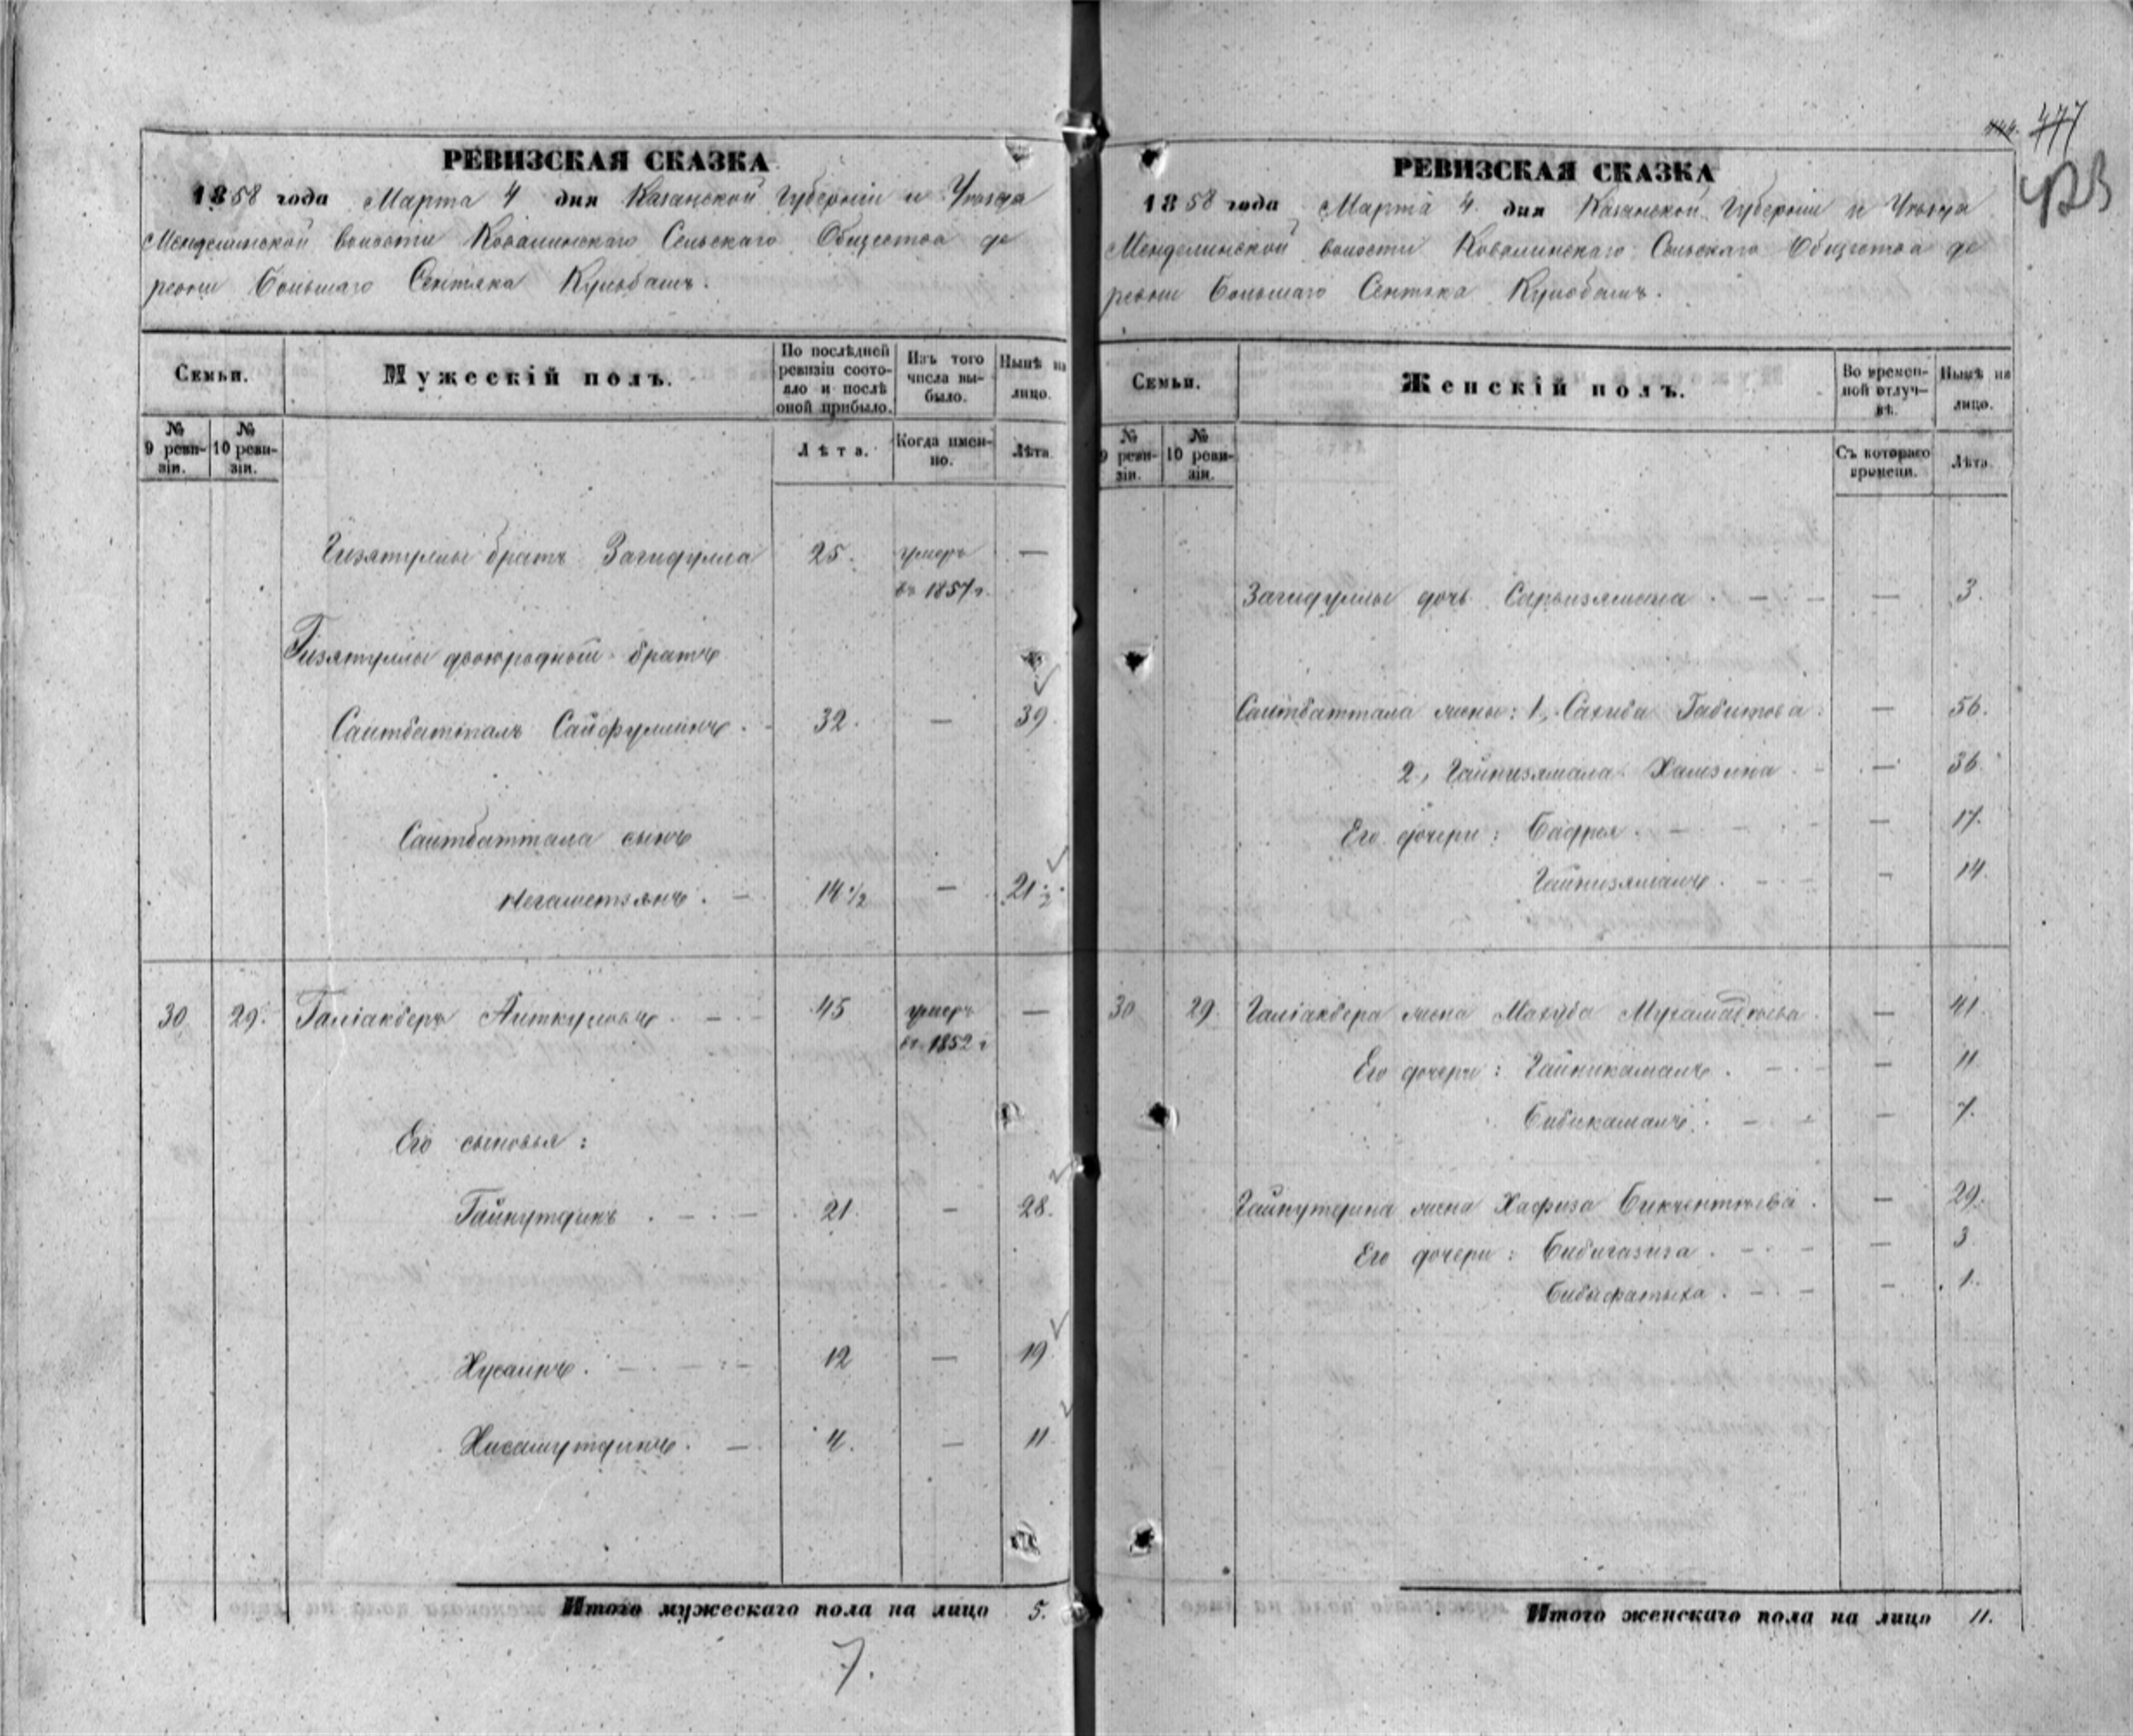 РЕВИЗСКАЯ СКАЗКА
1858 года Марта 4 дня Казанской Губерніи и Уѣзда
Менделинской волости Ковалинскаго Сельскаго Общества де
ревни Большаго Сентяка Кульбашъ.
Семьи.
Мужескій полъ.
По послѣдней ревизіи состояло и послѣ оной прибыло.
Изъ того числа выбыло.
Нынѣ на лицо.
№ 9 ревизіи.
№ 10 ревизіи.
Лѣта.
Когда именно.
Лѣта.
Гизятуллы братъ Загидулла 25. умеръ —
въ 1857 г.
Гизятуллы двоюродный братъ
Саитбатталъ Сайфуллинъ. - 32. — 39.
Саитбаттала сынъ
Негаметзянъ. — 14 1/2 — 21 1/2.
30 29. Галіакберъ Аиткуловъ — . — 45 умеръ —
въ 1852 г
Его сыновья:
Гайнутдинъ . — . — 21. — 28.
Хусаинъ. — . — : — 12 — 19
Хисамутдинъ. — 4. — 11
Итого мужескаго пола на лицо 5.
7.
444. 477
423
РЕВИЗСКАЯ СКАЗКА
1858 года Марта 4. дня Казанской Губерніи и Уѣзда
Менделинской волости Ковалинскаго Сельскаго Общества де
ревни Большаго Сентяка Кульбашъ.
Семьи.
Женскій полъ.
Во временной отлучкѣ.
Нынѣ на лицо.
№ 9 ревизіи.
№ 10 ревизіи.
Съ котораго времени.
Лѣта.
Загидуллы дочь Сарвизямала . — . — — 3.
Саитбаттала жены: 1, Сахиба Габитова. — 56.
2, Гайнизямала Хамзина . - — 36.
Его дочери: Бадрея. — . — 17.
Гайнизямалъ. — . — — 14.
30 29. Галіакбера жена Махуба Мухамадѣева. — 41.
Его дочери: Гайникамалъ. — . — — 11
Бибикамалъ. — . — — 7.
Гайнутдина жена Хафиза Бикчентѣева. — 29.
Его дочери: Бибигазиза. — . — — 3
Бибифатыха. — . — — 1.
Итого женскаго пола на лицо 11.